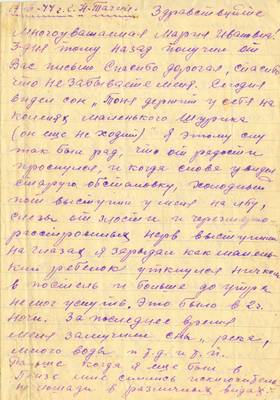 г. Н. Тагил. Здравствуйте
Многоуважаемая Мария Ивановна!
3 дня тому назад получил от
Вас письмо. Спасибо дорогая, спасибо
что не забываете меня. Сегодня
видел сон „Тоня держит у себя на
коленях маленького Шурика
(он ещё не ходит)". Я этому сну
так был рад, что от радости
проснулся, и когда снова увидел
старую обстановку, холодный
пот выступил у меня на лбу,
слезы от злости и черезмерно
расстроенных нерв выступили
на глазах, я зарыдал как малень-
кий ребенок уткнулся ничком
в постель и больше до утра
не мог уснуть. Это было в 2 ч.
ночи. За последнее время
меня замучили сны „ река,
много воды и т.д. и т.п.
Раньше когда я еще был в
мне снились исключительно
лошади в различных видах."